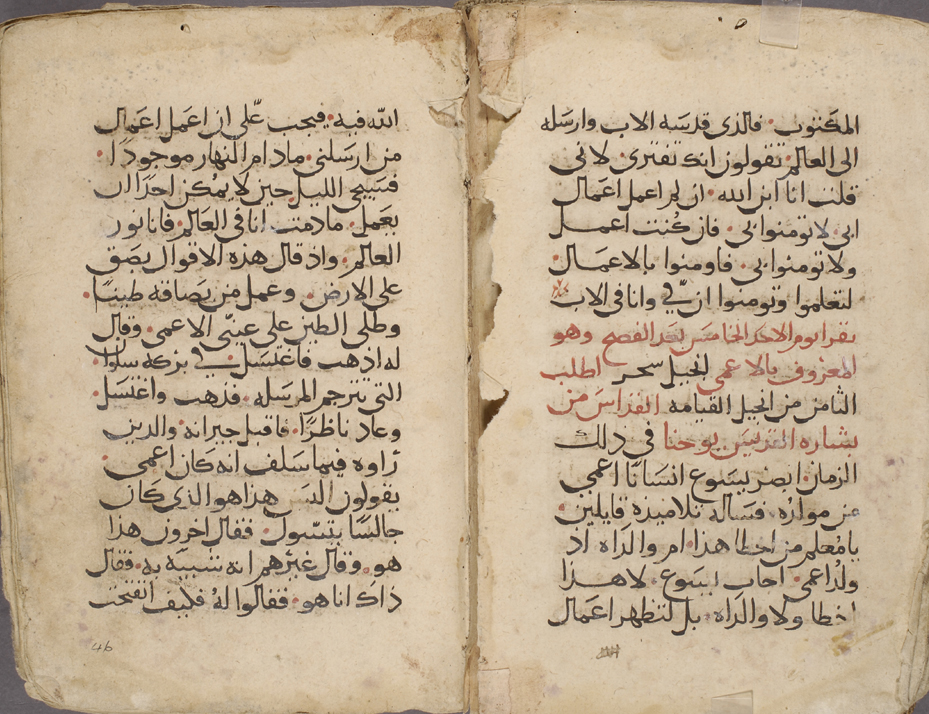 المكتوب. فالذى قدسه الاب وارسله
الى العالم. تقولون انك تفترى. لانى
قلت انا ابن الله. ان لم اعمل اعمال
ابى لا تومنوا بى. فان كنت اعمل
ولا تومنوا بى. فاومنوا بالاعمال.
لتعلموا وتومنوا ان فيّ وانا فى الاب
يقرا يوم الاحد الخامس بعد الفصح وهو
المعروف بالاعمى انجيل سحر اطلب
الثامن من انجيل القيامه القداس من
بشاره القديس يوحنا فى ذلك
الزمان ابصر يسوع انسانًا اعمي
من مولده. فساله تلاميذه قايلين.
يا مُعلم من اخطا هذا ام والداه اذ
ولد اعمى. اجاب ايسوع. لا هذا
اخطا ولا والداه. بل لتظهر اعمال
الله فيه. فيجب علّى ان اعمل اعمال
من ارسلنى. مادام النهار موجودًا.
فسيجى الليل حين لا يمكن احدًا ان
يعمل. مادمت انا فى العالم. فانا نور
العالم. واذ قال هذه الاقوال بصق
على الارض. وعمل من بصاقه طينًا.
وطلى الطين على عينّى الاعمى. وقال
له اذهب فاغتسل في بركه سلوان.
التى تترجم المرسله. فذهب واغتسل.
وعاد ناظرًا. فاقبل جيرانه. والذين
راوه فيما سلف انه كان اعمى.
يقولون اليس هذا هو الذى كان
جالسًا يتسّول. فقال اخرون هذا
هو. وقال غيرهم انه شبيه به. فقال
ذاك انا هو. فقالوا لهُ فكيف انفتحت
46